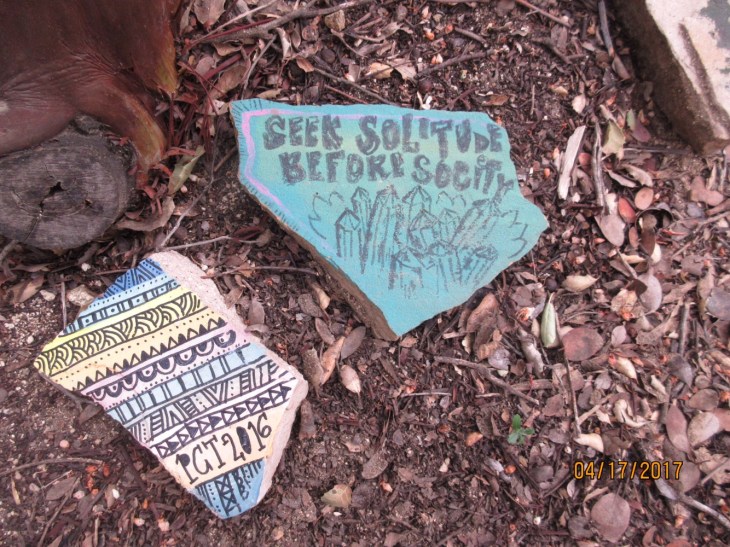 SEEK SOLITUDE
BEFORE SOCITY
PCT 2016
04/17/2017